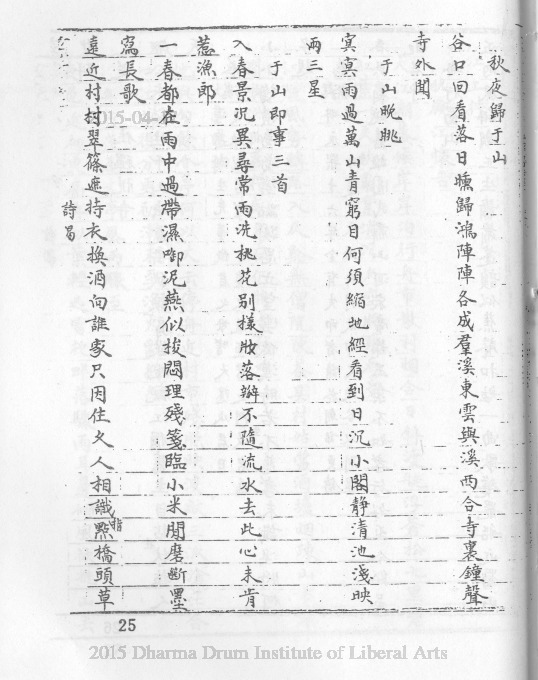 秋夜歸于山
谷口回看落日曛歸鴻陣陣各成羣溪東雲與溪西合寺裏鐘聲
寺外聞
于山晚眺
寞寞雨過萬山青窮目何須縮地經看到日沉小閣靜清池淺映
兩三星
于山即事三首
入春景况異尋常雨洗桃花別樣妝落瓣不隨流水去此心未肯
惹漁郎
一春都在雨中過帶濕啣泥燕似拔悶理殘箋臨小米閒磨斷墨
寫長歌
遠近村村翠篠遮持衣換酒向誰家只因住久人相識指點橋頭草
詩 昜
25
2015-04-
2015 Dharma Drum Institute of Liberal Arts